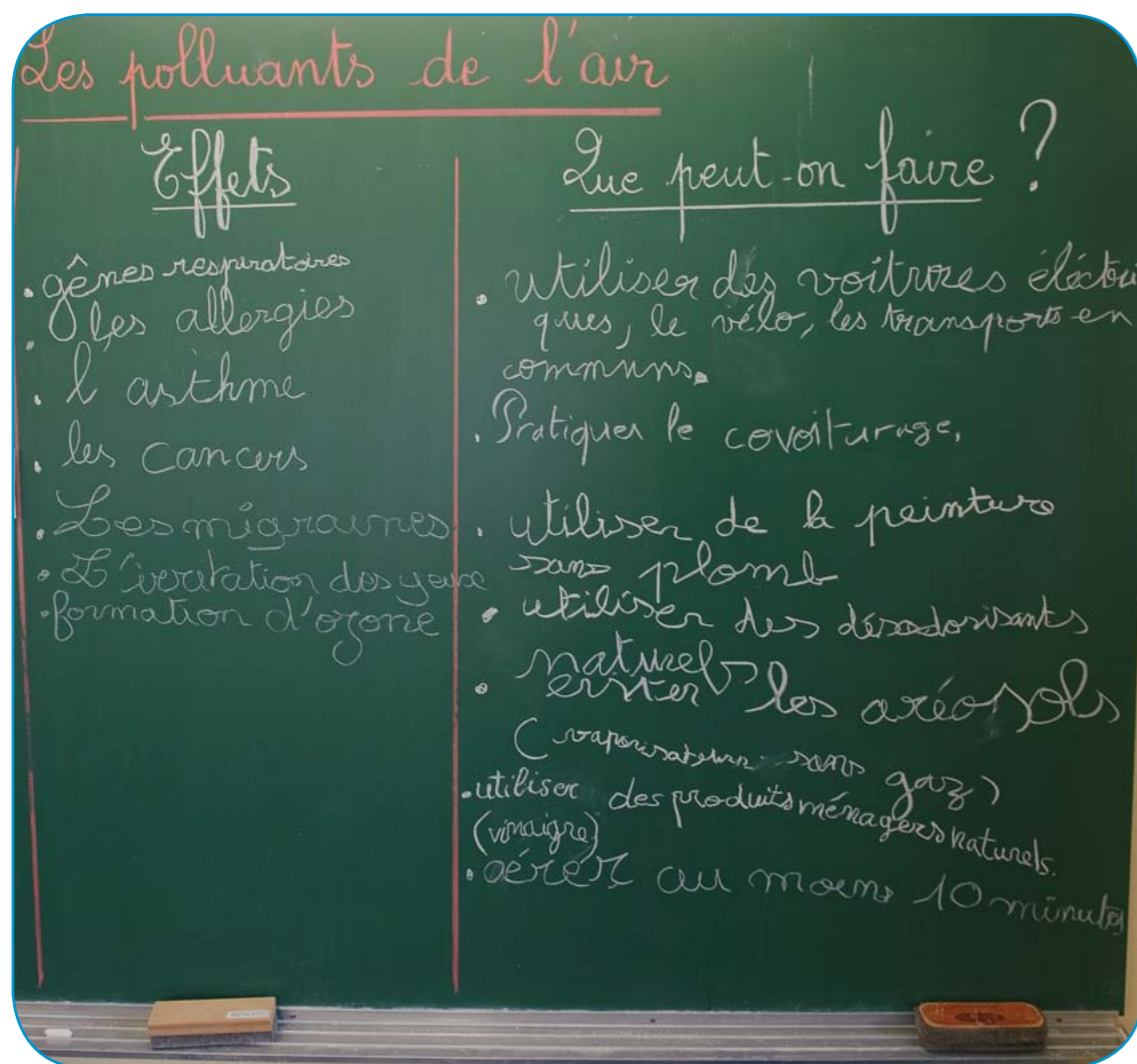 Les polluants de l'air
Effets
. gênes respiratoires
. les allergies
. l'asthme
. les cancers
. Les migraines
. L'irritation des yeux
. formation d'ozone
Que peut-on faire ?
. utiliser des voitures éléctri
ques, le vélo, les transports en
communs.
. Pratiquer le covoiturage.
. utiliser de la peinture
sans plomb
. utiliser des désodorisants
naturels
. eviter les aréosols
(vaporisateurs sans gaz)
. utiliser des produits ménagers naturels.
(vinaigre)
. aérér au moins 10 minutes